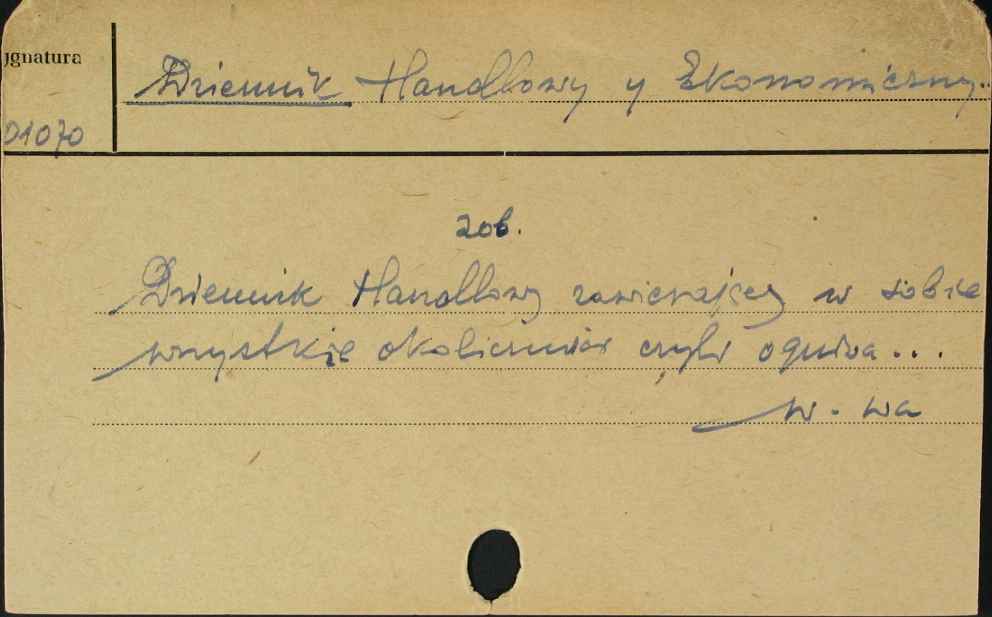 ygnatura
01070
Dziennik Handlowy y Ekonomiczny.
zob.
Dziennik Handlowy zawierający w sobie
wszystkie okoliczności czyli ogniwa...
W-wa